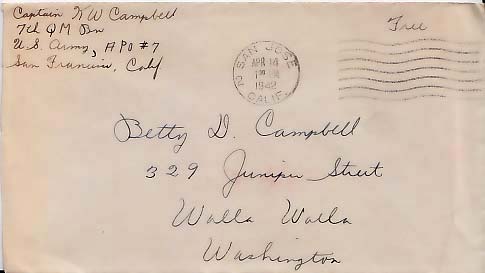 Captain K W Campbell
7th QM Bn
U.S. Army, APO #7
San Francisco, Calif
Free
SAN JOSE
APR 14
1942
CALIF.
Betty D. Campbell
329 Juniper Street
Walla Walla
Washington